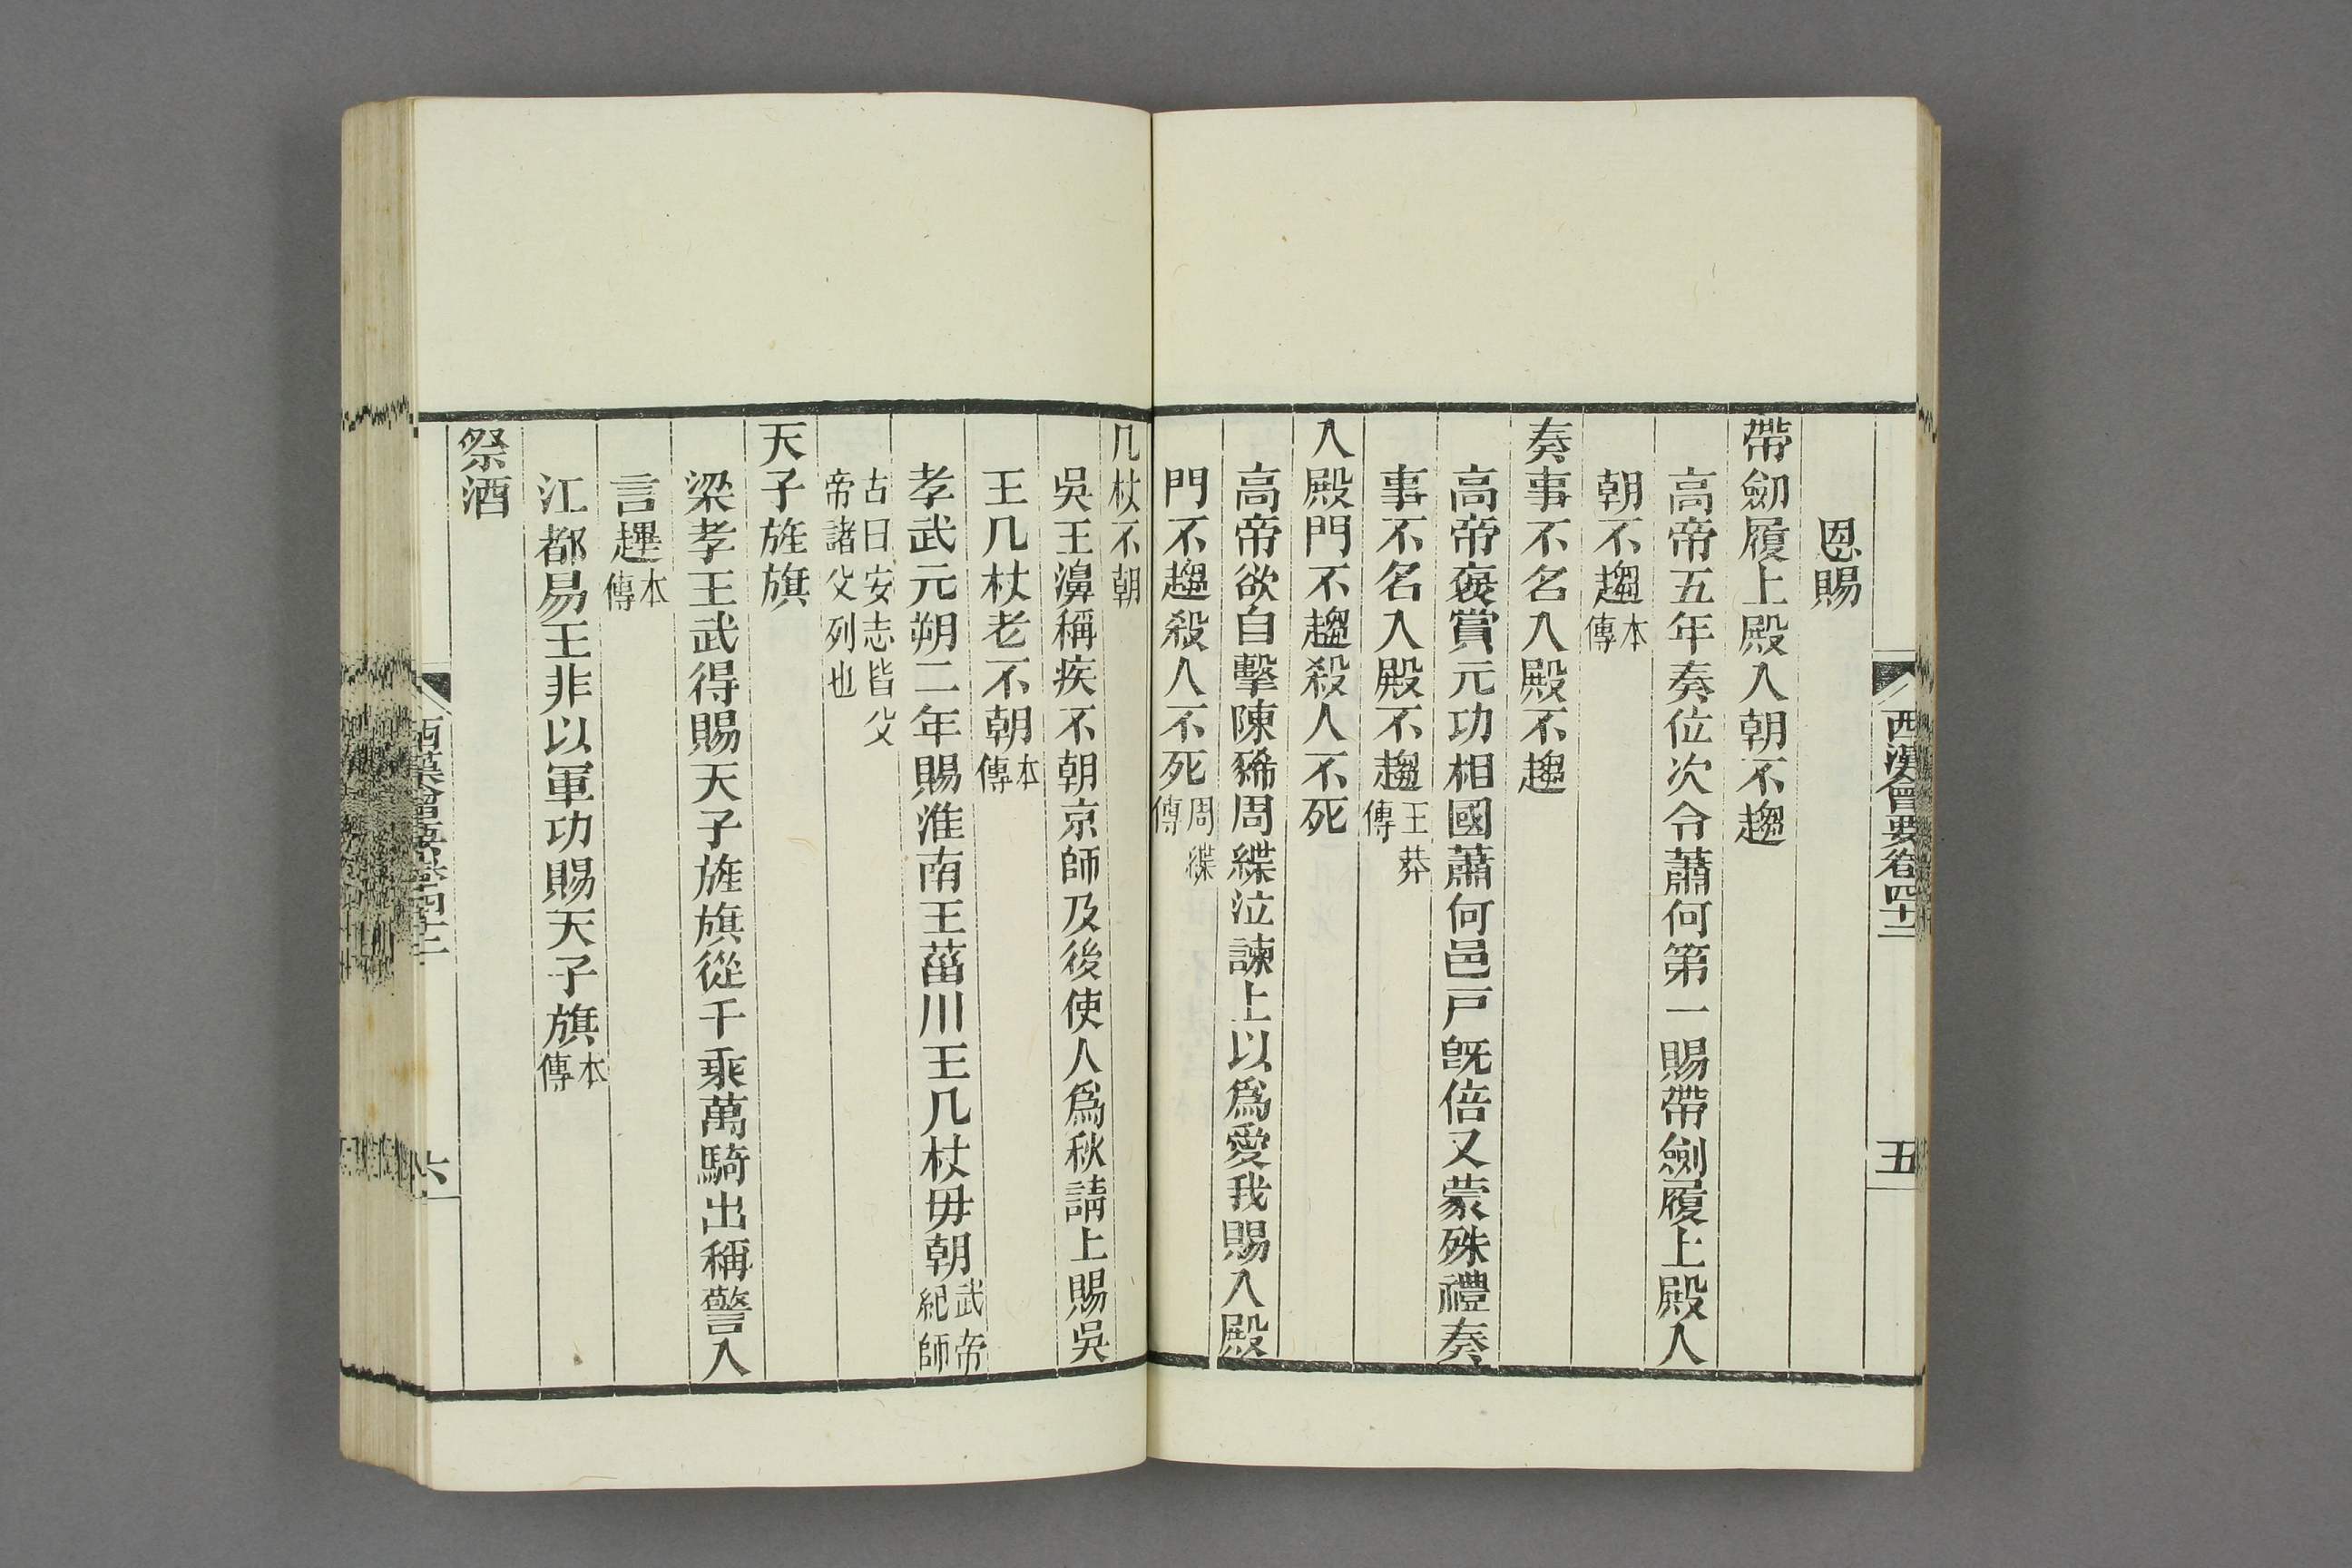 西漢會要卷四十二
五
恩賜
帶劒履上殿入朝不趨
高帝五年奏位次令蕭何第一賜帶劍履上殿入
朝不趨本傳
奏事不名入殿不趨
高帝褒賞元功相國蕭何邑戸旣倍又蒙殊禮奏
事不名入殿不趨王莽傳
入殿門不趨殺人不死
高帝欲自擊陳豨周緤泣諫上以爲愛我賜入殿
門不趨殺人不死周緤傳
几杖不朝
吳王濞稱疾不朝京師及後使人爲秋請上賜吳
王几杖老不朝本傳
孝武元朔二年賜淮南王菑川王几杖毋朝武帝紀師
古曰安志皆父帝諸父列也
天子旌旗
梁孝王武得賜天子旌旗從千乘萬騎出稱警入
言趩本傳
江都易王非以軍功賜天子旗本傳
祭酒
西漢會要卷四十二
六